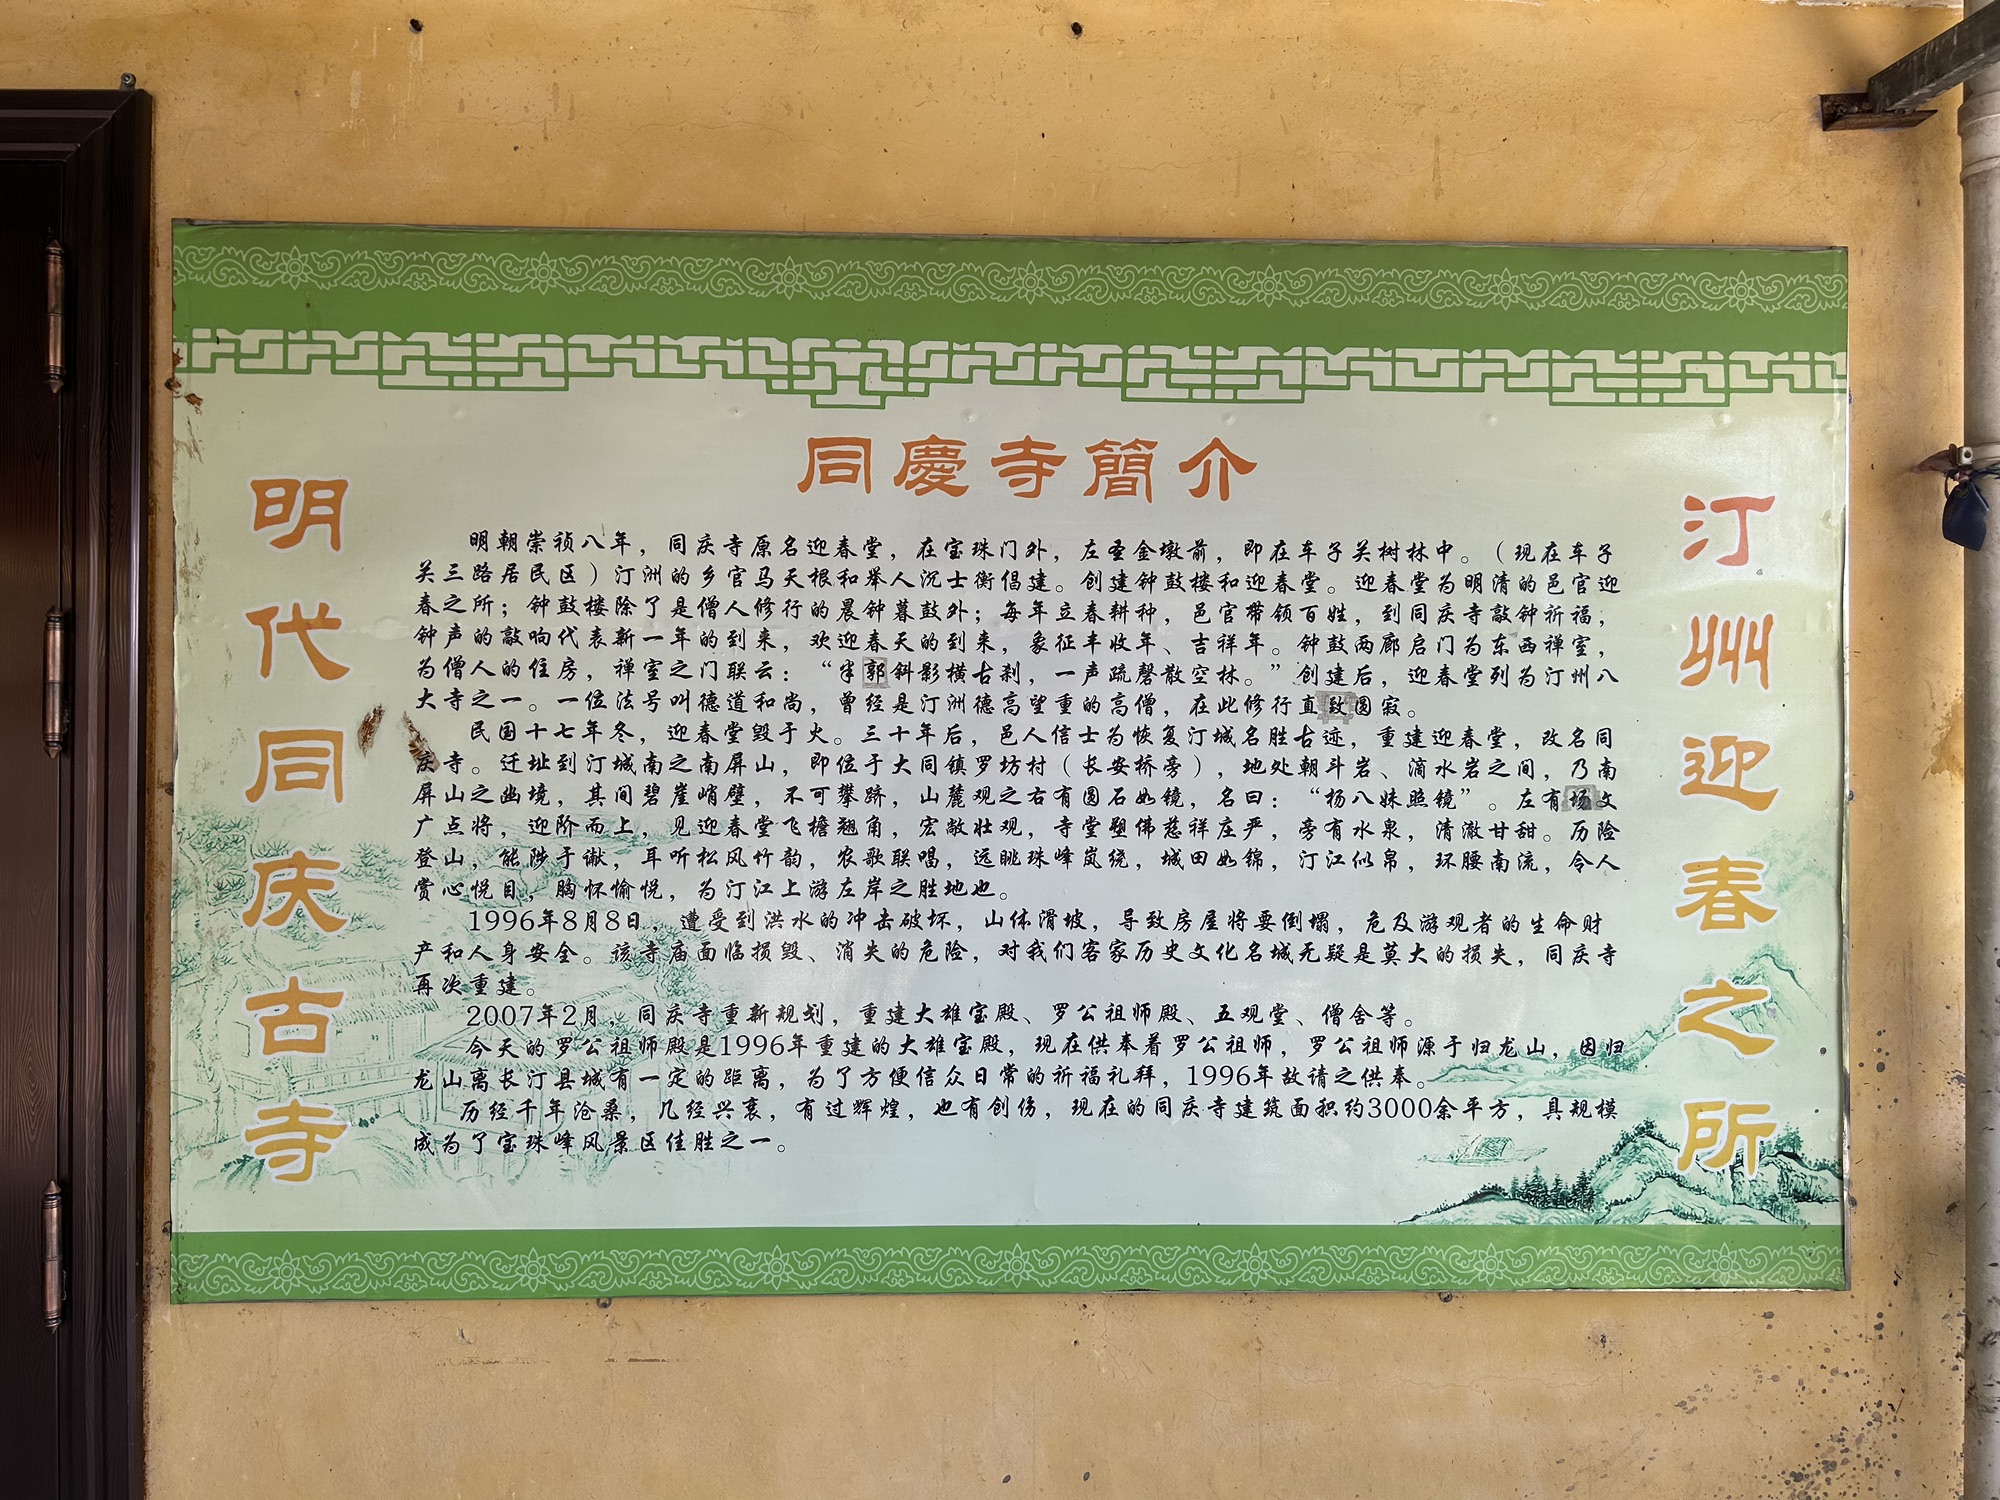 同慶寺簡介
明代同庆古寺
汀州迎春之所
明朝崇祯八年，同庆寺原名迎春堂，在宝珠门外，左圣金墩前，即在车子关树林中。（现在车子
关三路居民区）汀洲的乡官马天根和举人沉士衡倡建。创建钟鼓楼和迎春堂。迎春堂为明清的邑官迎
春之所；钟鼓楼除了是僧人修行的晨钟暮鼓外；每年立春耕种，邑官带领百姓，到同庆寺敲钟祈福，
钟声的敲响代表新一年的到来，欢迎春天的到来，象征丰收年、吉祥年。钟鼓两廊启门为东西禅室，
为僧人的住房，禅室之门联云：“半郭斜影横古刹，一声疏磬散空林。”创建后，迎春堂列为汀州八
大寺之一。一位法号叫德道和尚，曾经是汀洲德高望重的高僧，在此修行直致圆寂。
民国十七年冬，迎春堂毁于火。三十年后，邑人信士为恢复汀城名胜古迹，重建迎春堂，改名同
庆寺。迁址到汀城南之南屏山，即位于大同镇罗坊村（长安桥旁），地处朝斗岩、滴水岩之间，乃南
屏山之幽境，其间碧崖峭壁，不可攀跻，山麓观之右有圆石如镜，名曰：“杨八妹照镜”。左有场文
广点将，迎阶而上，见迎春堂飞檐翘角，宏敞壮观，寺堂塑佛慈祥庄严，旁有水泉，清澈甘甜。历险
登山，能涉于谳，耳听松风竹韵，农歌联唱，远眺珠峰岚绕，城田如锦，汀江似帛，环腰南流，令人
赏心悦目，胸怀愉悦，为汀江上游左岸之胜地也。
1996年8月8日，遭受到洪水的冲击破坏，山体滑坡，导致房屋将要倒塌，危及游观者的生命财
产和人身安全。该寺庙面临损毁、消失的危险，对我们客家历史文化名城无疑是莫大的损失，同庆寺
再次重建。
2007年2月，同庆寺重新规划，重建大雄宝殿、罗公祖师殿、五观堂、僧舍等。
今天的罗公祖师殿是1996年重建的大雄宝殿，现在供奉着罗公祖师，罗公祖师源于归龙山，因归
龙山离长汀县城有一定的距离，为了方便信众日常的祈福礼拜，1996年故请之供奉。
历经千年沧桑，几经兴衰，有过辉煌，也有创伤，现在的同庆寺建筑面积约3000余平方，具规模
成为了宝珠峰风景区佳胜之一。